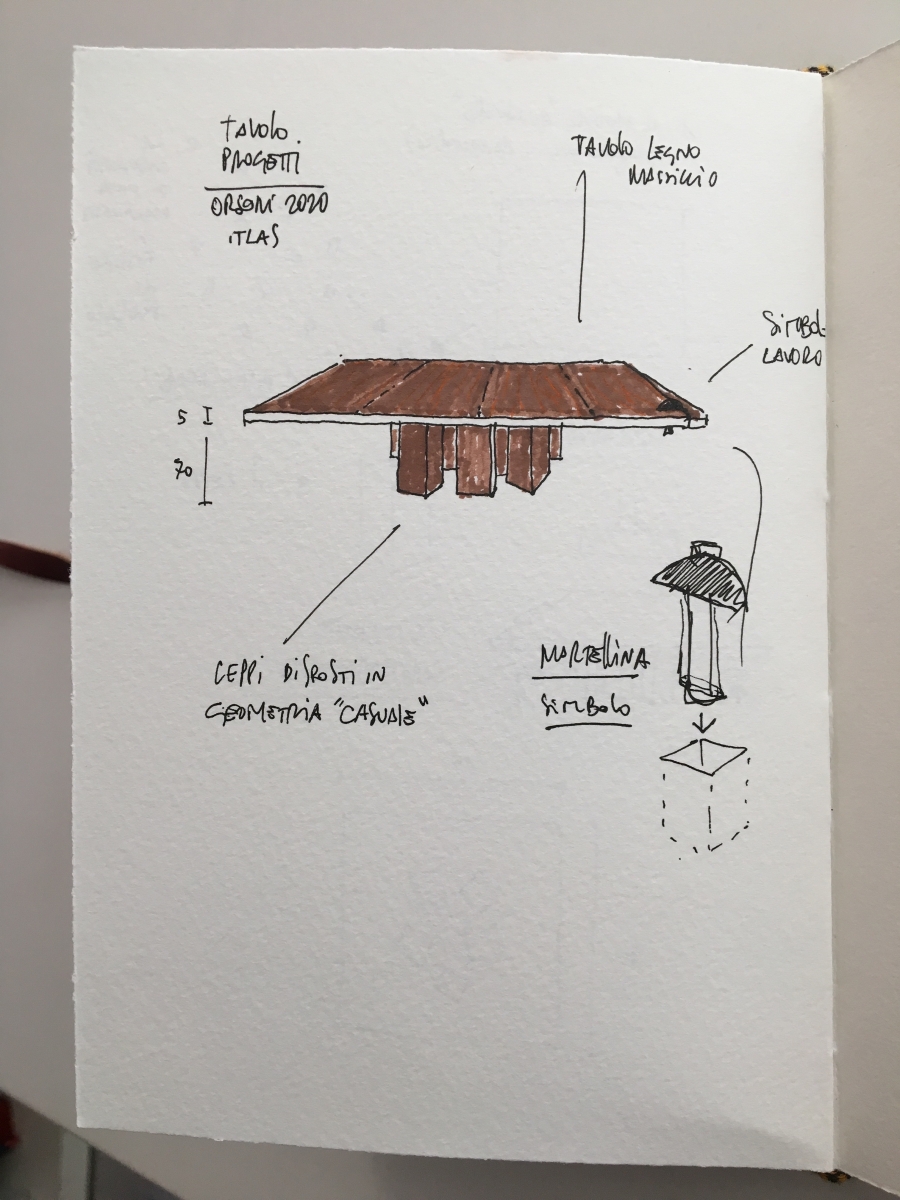 TAVOLO.
PROGETTI
ORSONI 2020
ITLAS
TAVOLO LEGNO
MASSICCIO
SIMBOL
LAVORO
5
70
CEPPI DISPOSTI IN
GEOMETRIA "CASUALE"
MARTELLINA
SIMBOLO